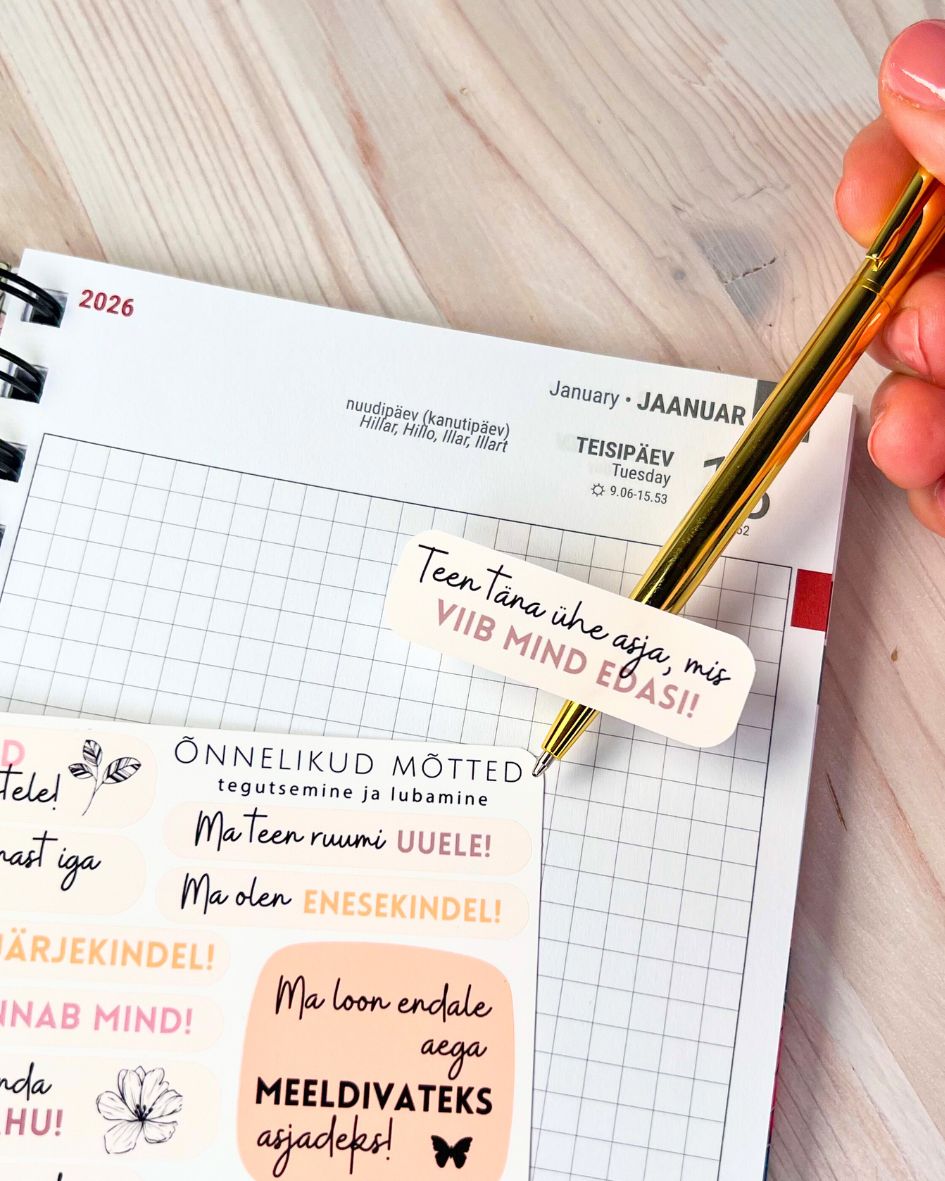 2026
January • JAANUAR
nuudipäev (kanutipäev)
Hillar, Hillo, Illar, Illart
TEISIPÄEV
Tuesday
9.06-15.53
Teen täna ühe asja, mis
VIIB MIND EDASI!
ÕNNELIKUD MÕTTED
tegutsemine ja lubamine
Ma teen ruumi UUELE!
Ma olen ENESEKINDEL!
iga
JÄRJEKINDEL!
MIND!
Ma loon endale
aega
MEELDIVATEKS
asjadeks!